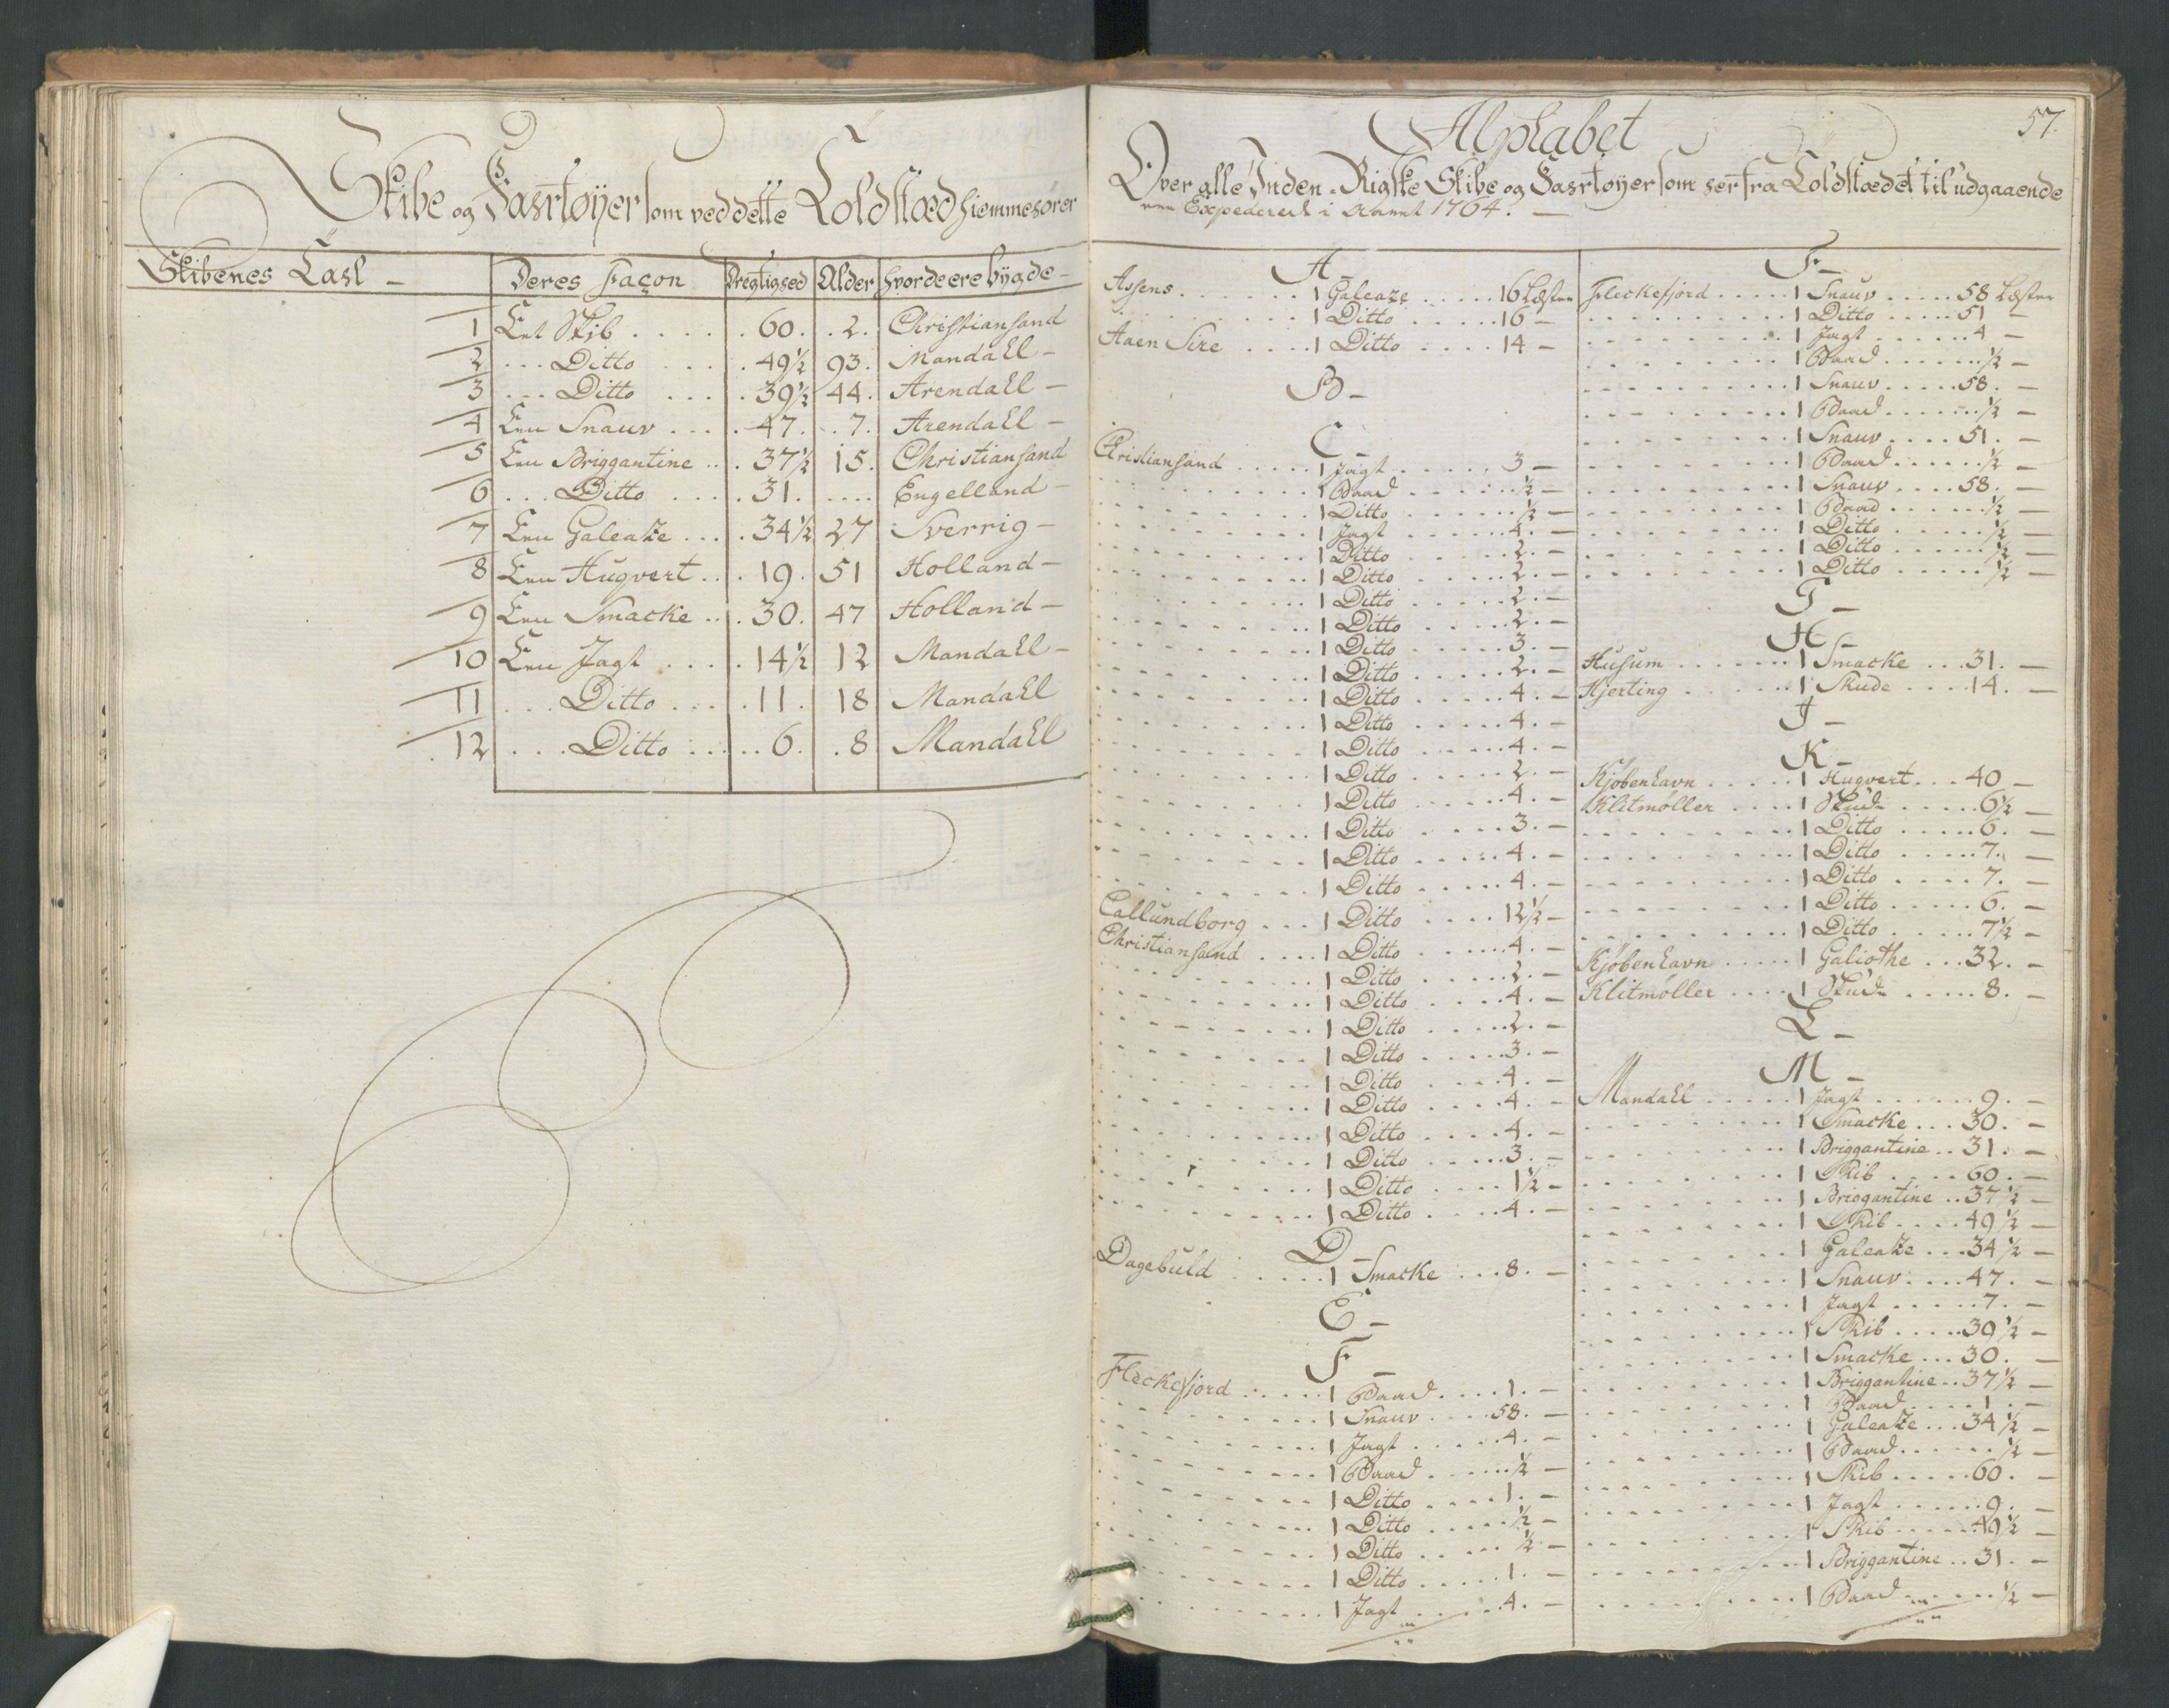 Skibe og Fartøyer som ved dette Toldstæd hiemmehører
Skibenes Tall -
Deres Façon
Dregtighed
Alder
hvor de ere bÿgde -
1 Eet Skib . . . . 60. . 2. Christiansand
2 . . . Ditto . . . 49½ 93. Mandahl -
3 . . . Ditto . . . 39½ 44. Arendahl -
4 Een Snauv . . . 47. . 7. Arendahl -
5 Een Briggantine . . 37½ 15. Christiansand
6 . . . Ditto . . . 31. . . . . Engelland -
7 Een Galeatze . . . 34½ 27 Sverrig -
8 Een Huqvert . . 19. 51 Holland -
9 Een Smacke . . 30. 47 Holland -
10 Een Jagt . . . 14½ 12 Mandahl -
11 . . . Ditto . . . 11. 18 Mandahl
12 . . . Ditto . . . 6. . 8 Mandahl
57.
Alphabet
Over alle Inden-Rigske Skibe og Fartøyer som her fra Toldstædet til udgaaende
ere Expederet i Aaret 1764. -
A -
Assens . . . . . . 1 Galeaze . . . . . 16 Læster
. . . . . . 1 Ditto . . . . . 16 -
Aaen Sire . . . . 1 Ditto . . . . 14 -
B -
C -
Christiansand . . . . . 1 Jagt . . . . . 3 -
. . . . . . 1 Baad . . . . . ½ -
. . . . . . 1 Ditto . . . . . ½ -
. . . . . . 1 Jagt . . . . . 4. -
. . . . . . 1 Ditto . . . . . 2. -
. . . . . . 1 Ditto . . . . . 2. -
. . . . . . 1 Ditto . . . . . 2. -
. . . . . . 1 Ditto . . . . . 2. -
. . . . . . 1 Ditto . . . . . 3. -
. . . . . . 1 Ditto . . . . . 2. -
. . . . . . 1 Ditto . . . . . 4. -
. . . . . . 1 Ditto . . . . . 4. -
. . . . . . 1 Ditto . . . . . 4. -
. . . . . . 1 Ditto . . . . . 2. -
. . . . . . 1 Ditto . . . . . 4. -
. . . . . . 1 Ditto . . . . . 3. -
. . . . . . 1 Ditto . . . . . 4. -
. . . . . . 1 Ditto . . . . . 4. -
Callundborg . . . 1 Ditto . . . . 12½ -
Christiansand . . . . 1 Ditto . . . . . 4. -
. . . . . . 1 Ditto . . . . . 2. -
. . . . . . 1 Ditto . . . . . 4. -
. . . . . . 1 Ditto . . . . . 2. -
. . . . . . 1 Ditto . . . . . 3. -
. . . . . . 1 Ditto . . . . 4. -
. . . . . . 1 Ditto . . . . 4. -
. . . . . . 1 Ditto . . . . 4. -
. . . . . . 1 Ditto . . . . . 3. -
. . . . . . 1 Ditto . . . . 1½ -
. . . . . . 1 Ditto . . . . 4. -
D -
Dagebuld . . . . . 1 Smacke . . . 8. -
E -
F -
Fleckefjord . . . . . 1 Baad . . . . 1. -
. . . . . . 1 Snauv . . . . 58. -
. . . . . . 1 Jagt . . . . . 4. -
. . . . . . 1 Baad . . . . . ½ -
. . . . . . 1 Ditto . . . . 1. -
. . . . . . 1 Ditto . . . . . ½ -
. . . . . . 1 Ditto . . . . . ½ -
. . . . . . 1 Ditto . . . . . 1. -
. . . . . . 1 Jagt . . . . . 4. -
F -
Fleckefjord . . . . . 1 Snauv . . . . . 58 Læster
. . . . . . 1 Ditto . . . . . 51 -
. . . . . . 1 Jagt . . . . . 4 -
. . . . . . 1 Baad . . . . . ½ -
. . . . . . 1 Snauv . . . . . 58. -
. . . . . . 1 Baad . . . . . ½ -
. . . . . . 1 Snauv . . . . 51. -
. . . . . . 1 Baad . . . . . ½ -
. . . . . . 1 Snauv . . . . 58. -
. . . . . . 1 Baad . . . . . ½ -
. . . . . . 1 Ditto . . . . . ½ -
. . . . . . 1 Ditto . . . . . ½ -
. . . . . . 1 Ditto . . . . . ½ -
G -
H -
Husum . . . . . . 1 Smacke . . . 31. -
Hjerting . . . . . 1 Skude . . . . 14. -
J -
K -
Kjøbenhavn . . . . . 1 Huqvert . . . 40 -
Klitmøller . . . . 1 Skude . . . . . 6½ -
. . . . . . 1 Ditto . . . . . 6. -
. . . . . . 1 Ditto . . . . . 7. -
. . . . . . 1 Ditto . . . . 7. -
. . . . . . 1 Ditto . . . . . 6. -
. . . . . . 1 Ditto . . . . . 7½ -
Kjøbenhavn . . . . . 1 Galiothe . . . 32. -
Klitmøller . . . . 1 Skude . . . . . 8. -
L -
M -
Mandahl . . . . . 1 Jagt . . . . . . 9. -
. . . . . . 1 Smacke . . . 30. -
. . . . . . 1 Briggantine . . 31. -
. . . . . . 1 Skib . . . . . 60. -
. . . . . . 1 Briggantine . . 37½ -
. . . . . . 1 Skib . . . . 49½ -
. . . . . . 1 Galeatze . . . 34½ -
. . . . . . 1 Snauv . . . . 47. -
. . . . . . 1 Jagt . . . . . 7. -
. . . . . . 1 Skib . . . . . 39½ -
. . . . . . 1 Smacke . . . 30. -
. . . . . . 1 Briggantine . . 37½ -
. . . . . . 1 Baad . . . . 1. -
. . . . . . 1 Galeatze . . . 34½ -
. . . . . . 1 Baad . . . . . . ½ -
. . . . . . 1 Skib . . . . . 60. -
. . . . . . 1 Jagt . . . . . . 9. -
. . . . . . 1 Skib . . . . . 49½ -
. . . . . . 1 Briggantine . . 31. -
. . . . . . 1 Baad . . . . . ½ -